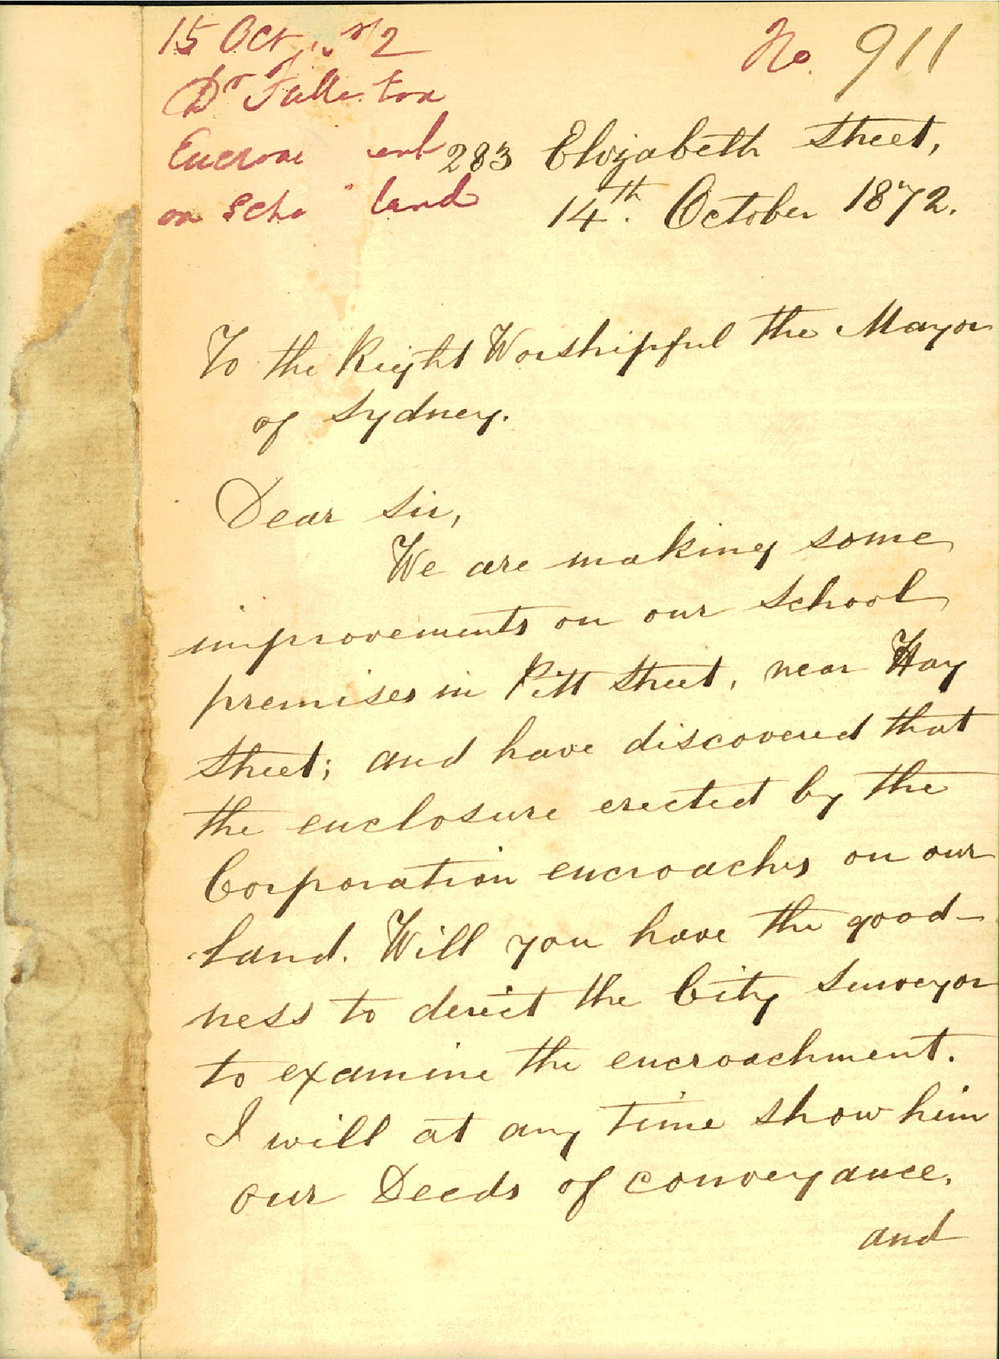 15 Oct 72
No. 911
Dr Fullerton
Encroa ent
on Scho land
283 Elizabeth Street,
14th. October 1872.
To the Right Worshipful the Mayor
of Sydney.
Dear Sir,
We are making some
improvements on our School
premises in Pitt Street, near Hay
Street; and have discovered that
the enclosure erected by the
Corporation encroaches on our
land. Will you have the good-
ness to direct the City Surveyor
to examine the encroachment.
I will at any time show him
our Deeds of conveyance.
and